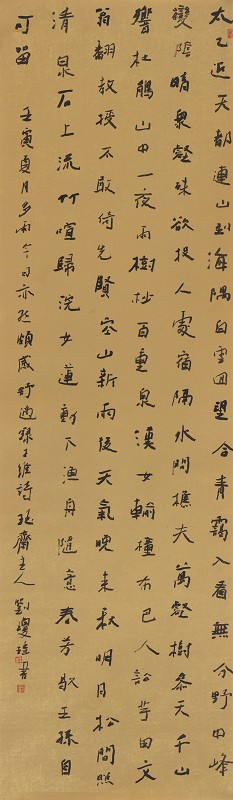 太乙近天都連山到海隅白雲回望合青靄入看無分野中峰
變陰晴衆壑殊欲投人處宿隔水問樵夫萬壑樹參天千山
響杜鵑山中一夜雨樹杪百重泉漢女輸橦布巴人訟芋田文
翁翻教授不敢倚先賢空山新雨後天氣晚來秋明月松間照
清泉石上流竹喧歸浣女蓮動下漁舟隨意春芳歇王孫自
可留 壬寅夏月多雨今日亦然頗感舒適錄王維詩 齋主人劉書